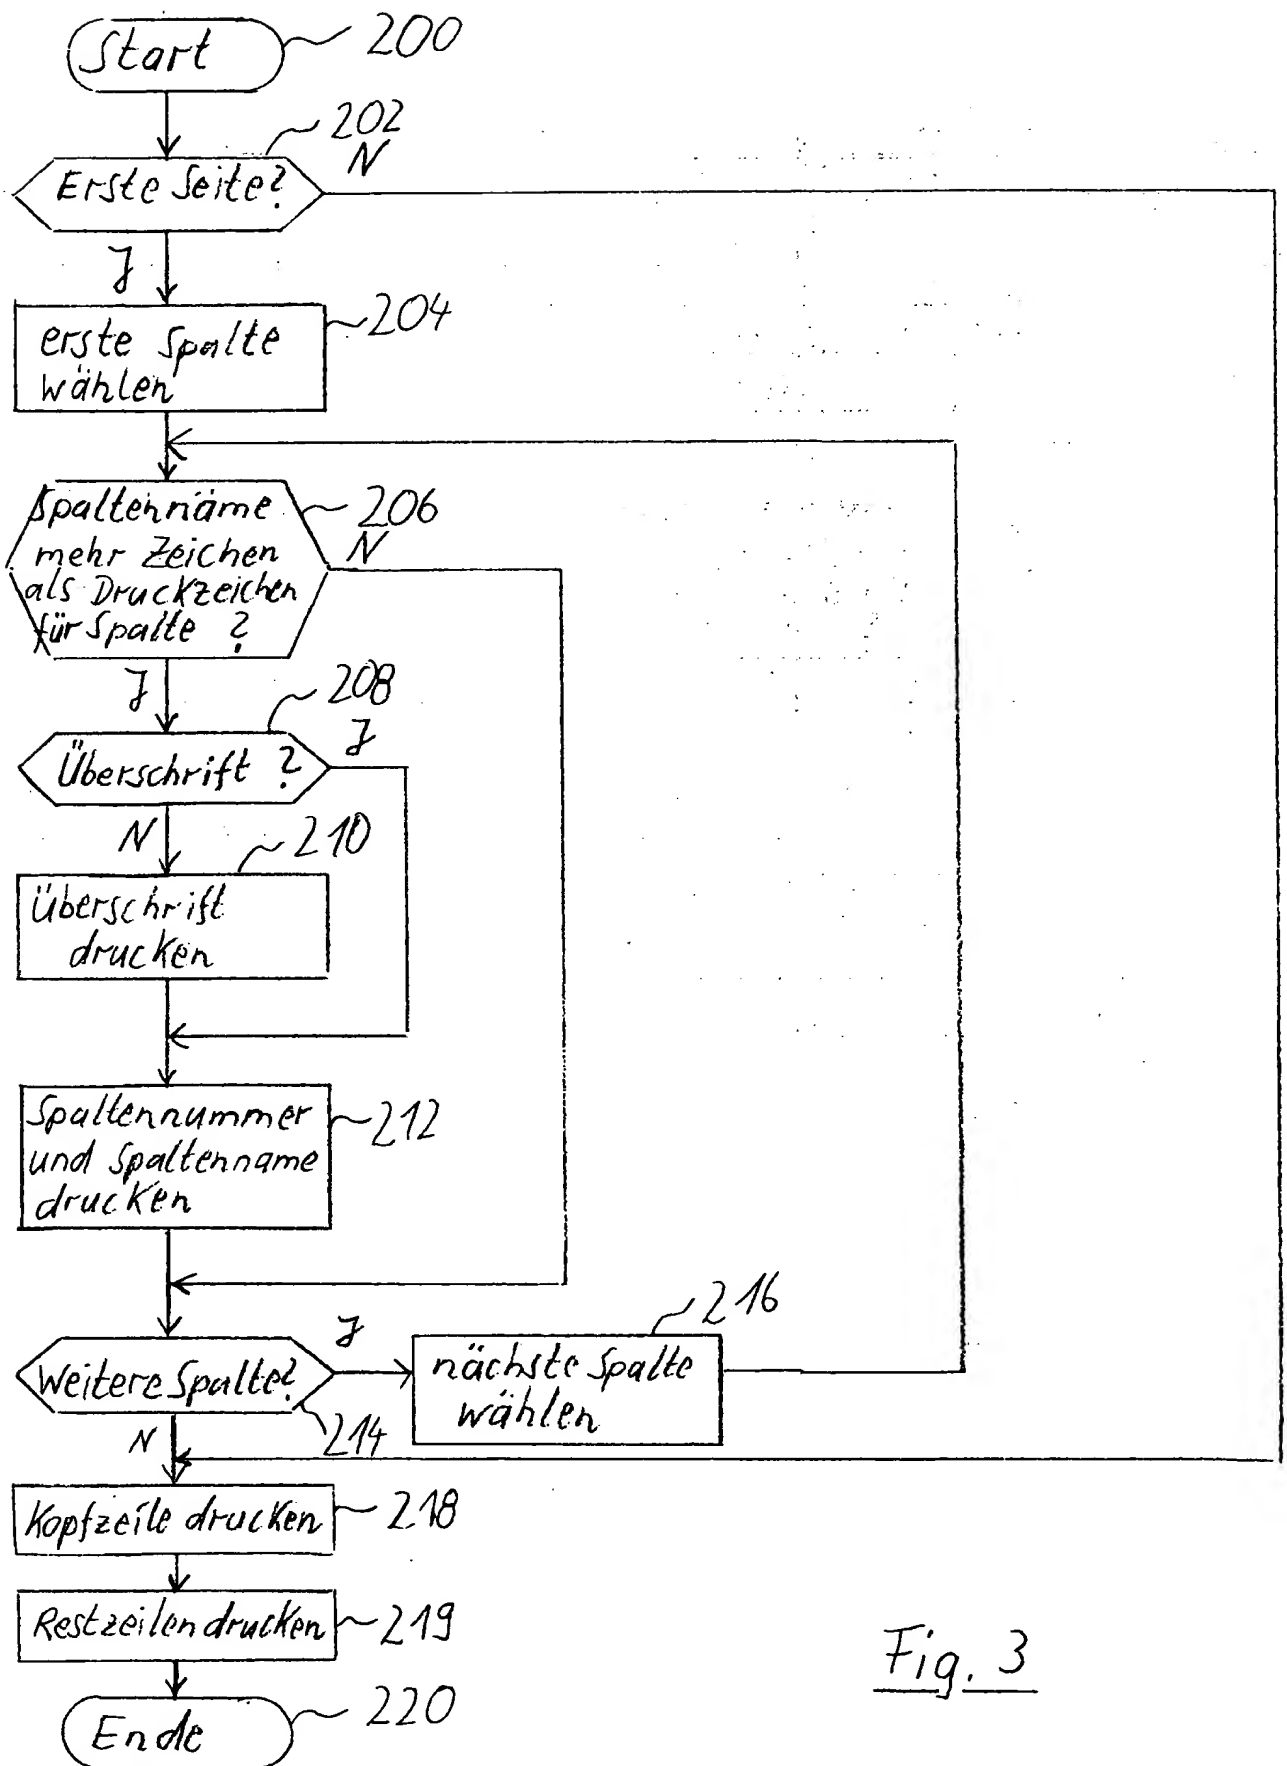 Start
200
202
N
Erste Seite?
J
204
erste Spalte
wählen
Spaltenname
206
mehr Zeichen
N
als Druckzeichen
für Spalte ?
J
208
J
Überschrift ?
N
210
Überschrift
drucken
Spaltennummer
212
und Spaltenname
drucken
216
J
Weitere Spalte?
nächste Spalte
wählen
214
N
Kopfzeile drucken
218
Restzeilen drucken
219
Fig. 3
Ende
220